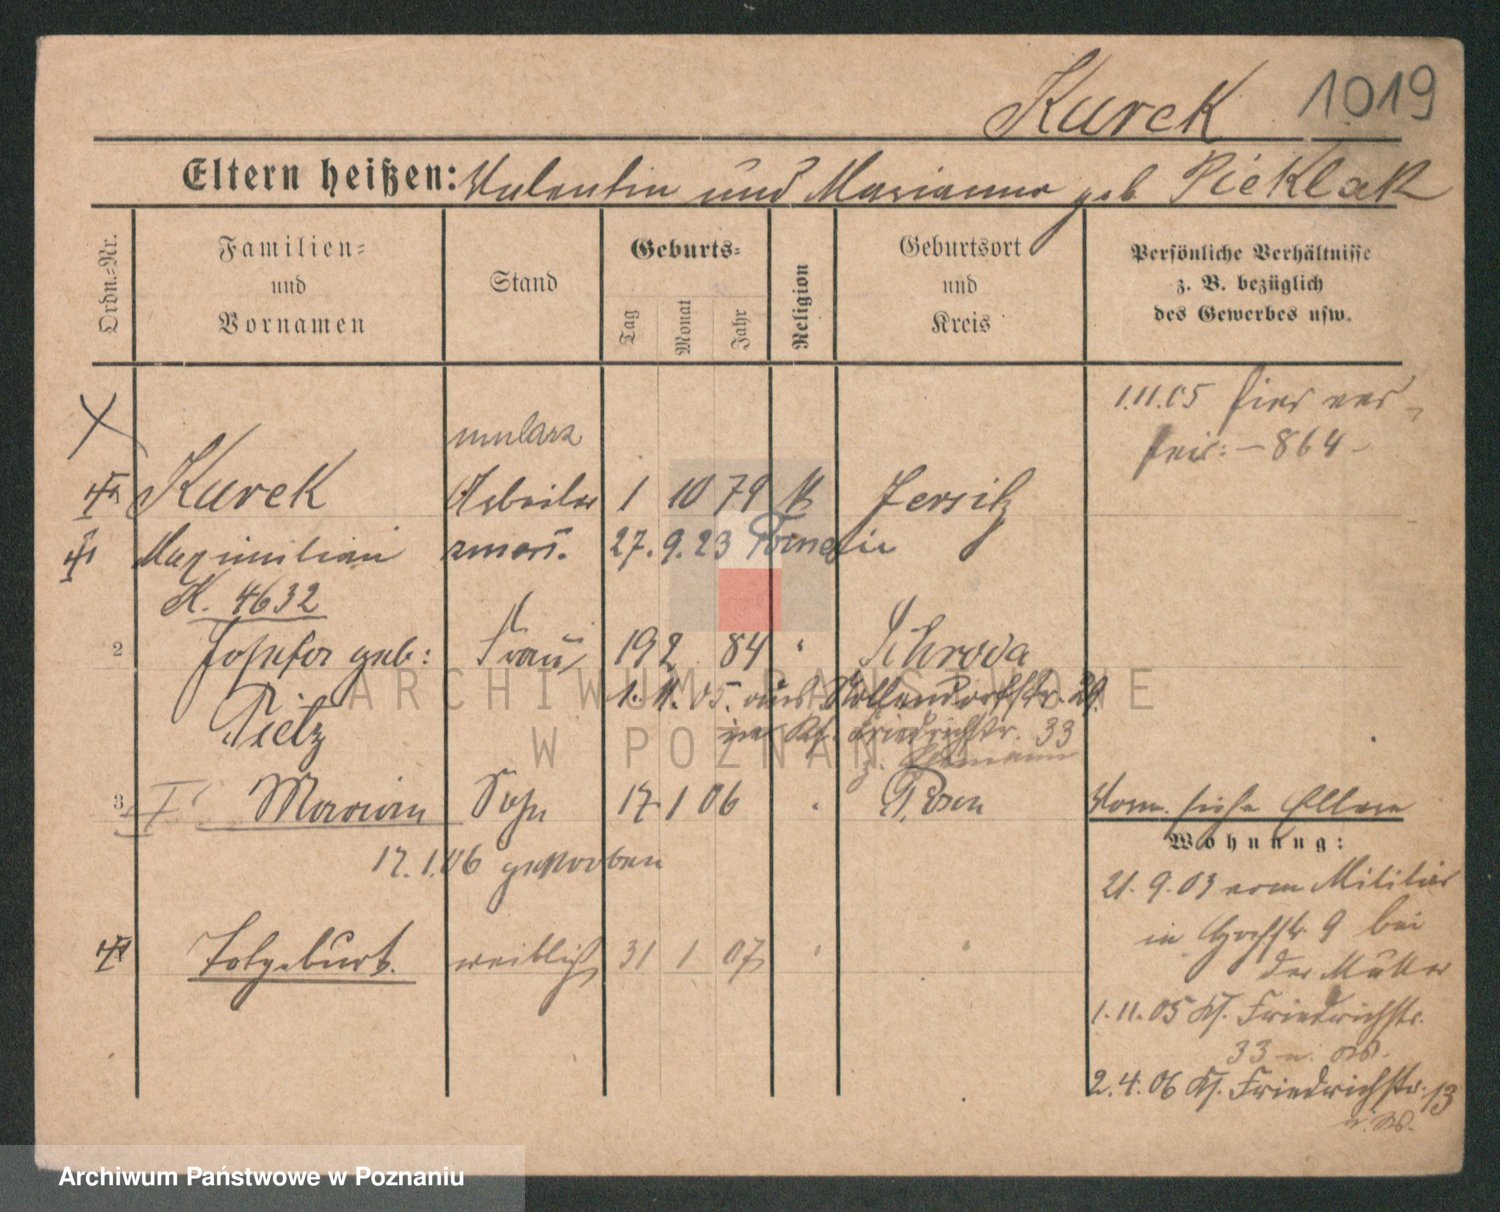 Kurek 1019
Eltern heißen: Valentin und Marianna geb. Pieklak
Ordn.-Nr.
Familien-
und
Vornamen
Stand
Geburts-
Tag
Monat
Jahr
Religion
Geburtsort
und
Kreis
Persönliche Verhältnisse
z. B. bezüglich
des Gewerbes usw.
1.11.05 hier ver-
heir: – 864 –
mularz
Kurek Arbeiter 1 10 79 k Jersitz
Maximilian zmarł. 27. 9. 23
K. 4632
2 Josefa geb: Frau 19 2 84 " Schroda
Pietz
1. 11. 05. aus Nollendorfstr. 29.
in Kl. Friedrichstr. 33
3 Marian Sohn 17 1 06 " Posen
17.1.06 gestorben
Vorm. siehe Eltern
Wohnung:
Totgeburt. weiblich 31 1 07 " "
21. 9. 03 vom Militär
in 9 bei
der Mutter
1. 11. 05 Kl. Friedrichstr.
33
2. 4. 06 Kl. Friedrichstr. 13
ARCHIWUM PAŃSTWOWE
W POZNANIU
Archiwum Państwowe w Poznaniu